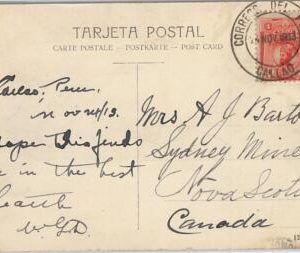 TARJETA POSTAL
CARTE POSTALE - POSTKARTE - POST CARD
CORREOS DEL
CALLAO
Callao, Peru.
Nov 24/13.
Hope this finds
in the best
health
Mrs A J Barto
Sydney Mine
Nova Scoti
Canada